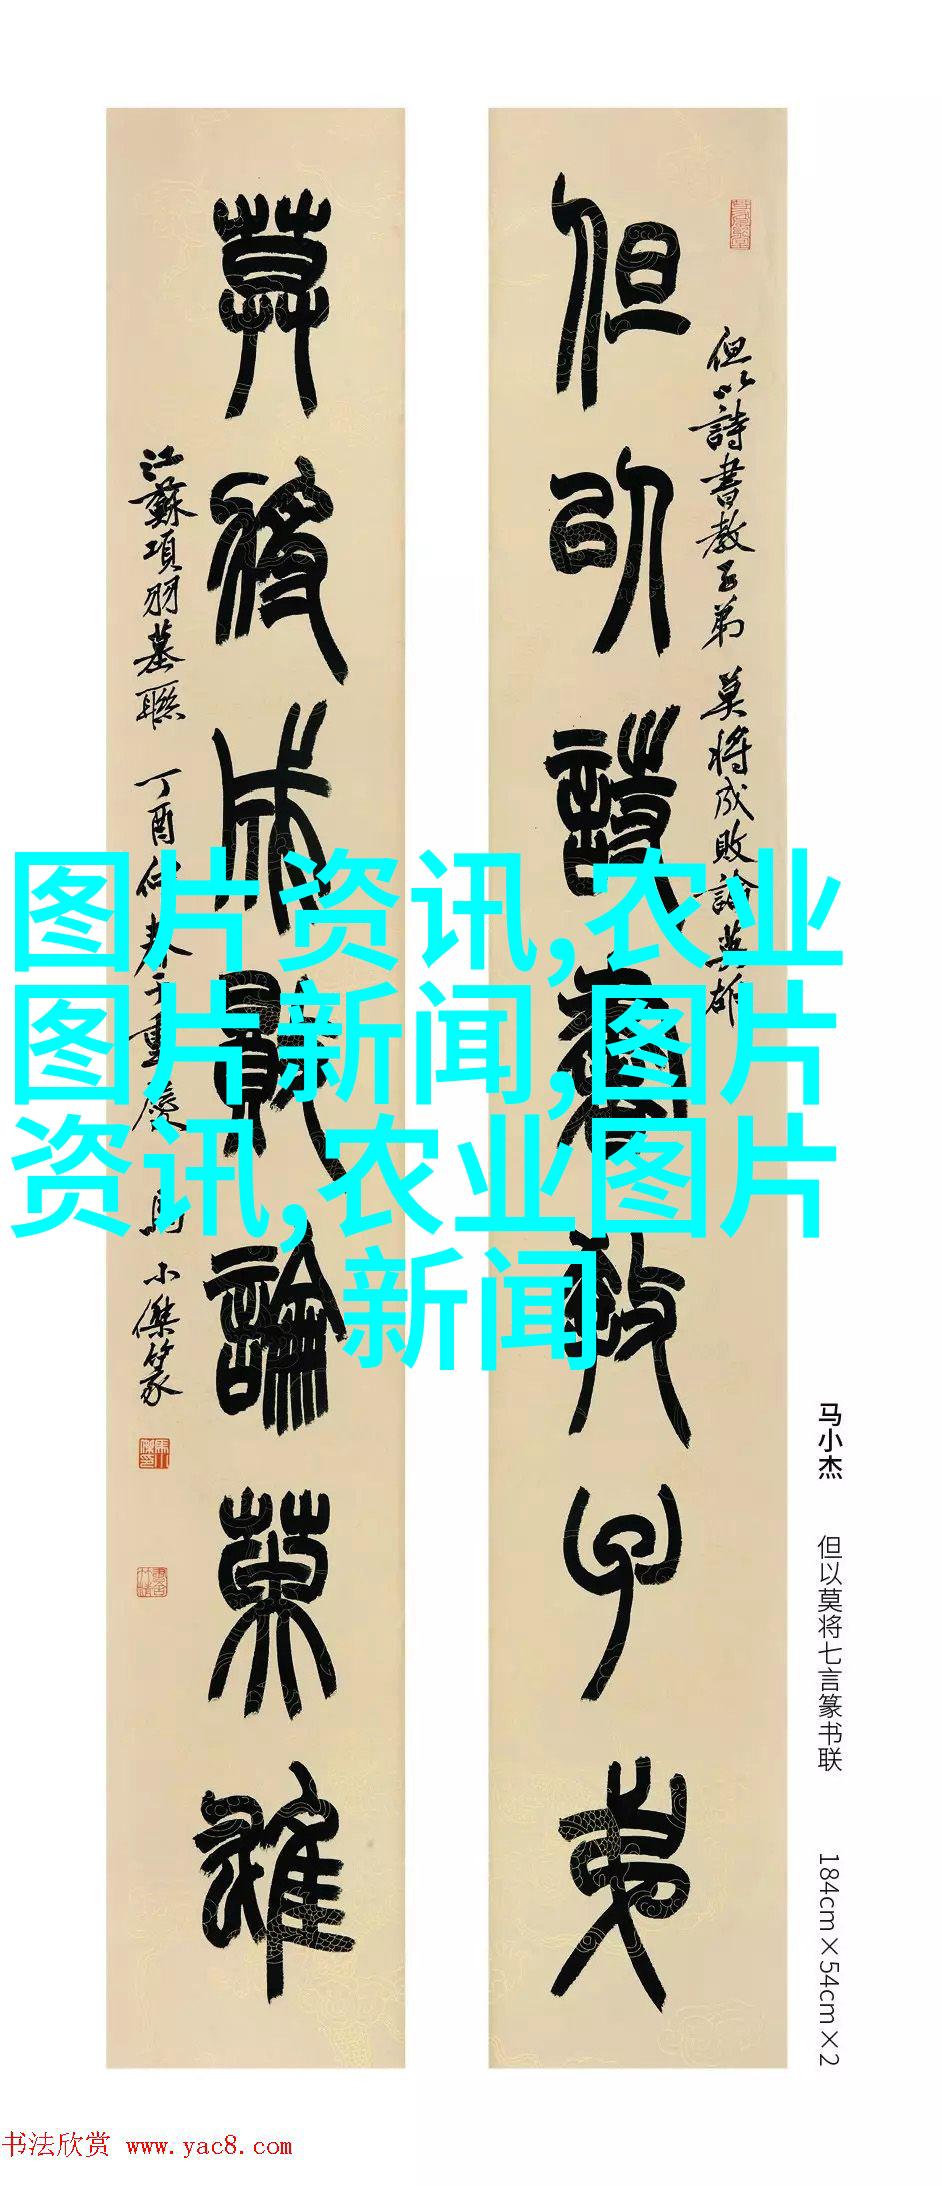 但以詩書教子弟
但以詩書教子弟 莫將成敗論英雄
莫將成敗論英雄
江蘇項羽墓聯 丁酉仲春于重慶 馬小傑篆
图片资讯,农业
图片新闻,图片
资讯,农业图片
新闻
马小杰 但以莫将七言篆书联 184cm×54cm×2
书法欣赏 www.yac8.com